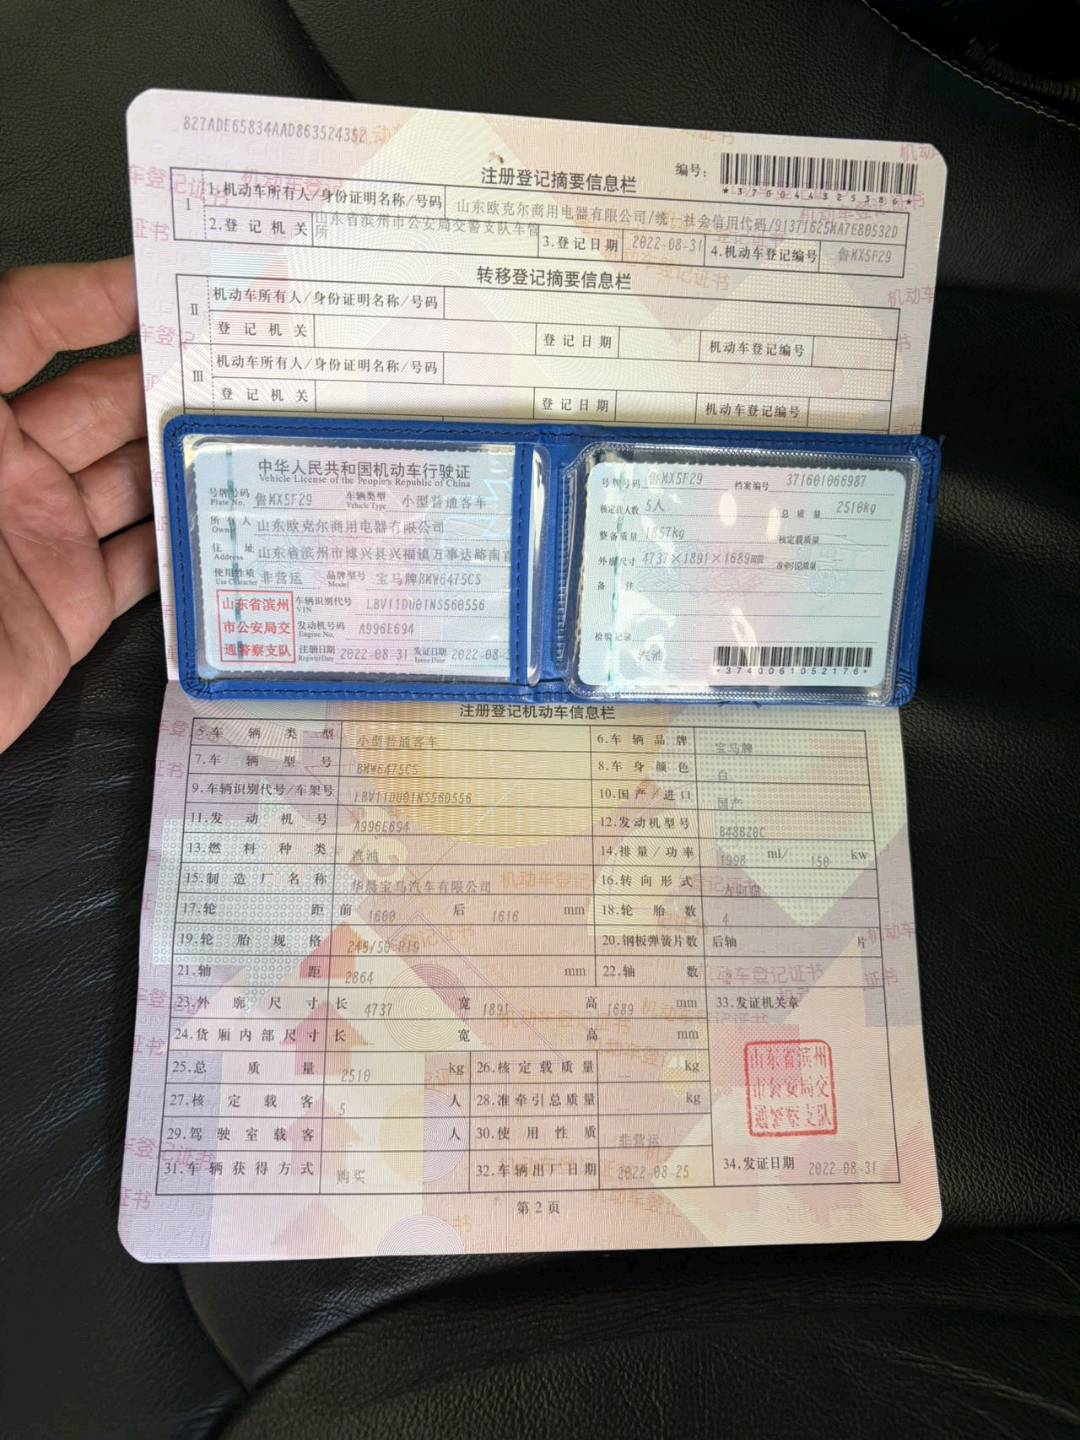 827ADE65834AAD863524352
注册登记摘要信息栏
编号:
*370044325386*
I
1.机动车所有人/身份证明名称/号码 山东欧克尔商用电器有限公司/统一社会信用代码/91371625MA7E80532D
2.登记机关 山东省滨州市公安局交警支队车管所 3.登记日期 2022-08-31 4.机动车登记编号 鲁MX5F29
转移登记摘要信息栏
II
机动车所有人/身份证明名称/号码
登记机关 登记日期 机动车登记编号
III
机动车所有人/身份证明名称/号码
登记机关 登记日期 机动车登记编号
中华人民共和国机动车行驶证
Vehicle License of the People's Republic of China
号牌号码 Plate No. 鲁MX5F29 车辆类型 Vehicle Type 小型普通客车
所有人 Owner 山东欧克尔商用电器有限公司
住址 Address 山东省滨州市博兴县兴福镇万事达路南首
使用性质 Use Character 非营运 品牌型号 Model 宝马牌BMW6475CS
山东省滨州市公安局交通警察支队
车辆识别代号 VIN LBV11DU01NS560556
发动机号码 Engine No. A996E694
注册日期 Register Date 2022-08-31 发证日期 Issue Date 2022-08-3
号牌号码 鲁MX5F29 档案编号 371601066987
核定载人数 5人 总质量 2510kg
整备质量 1857kg 核定载质量
外廓尺寸 4737×1891×1689mm 准牵引总质量
备注
检验记录
汽油
*3740061052176*
注册登记机动车信息栏
5.车辆类型 小型普通客车 6.车辆品牌 宝马牌
7.车辆型号 BMW6475CS 8.车身颜色 白
9.车辆识别代号/车架号 LBV11DU01NS560556 10.国产/进口 国产
11.发动机号 A996E694 12.发动机型号 B48B20C
13.燃料种类 汽油 14.排量/功率 1998 ml/ 150 kw
15.制造厂名称 华晨宝马汽车有限公司 16.转向形式 方向盘
17.轮距 前 1600 后 1616 mm 18.轮胎数 4
19.轮胎规格 245/50 R19 20.钢板弹簧片数 后轴 片
21.轴距 2864 mm 22.轴数 2
23.外廓尺寸 长 4737 宽 1891 高 1689 mm 33.发证机关章
24.货厢内部尺寸 长 宽 高 mm
25.总质量 2510 kg 26.核定载质量 kg
27.核定载客 5 人 28.准牵引总质量 kg
29.驾驶室载客 人 30.使用性质 非营运
31.车辆获得方式 购买 32.车辆出厂日期 2022-08-25
山东省滨州市公安局交通警察支队
34.发证日期 2022-08-31
第 2 页